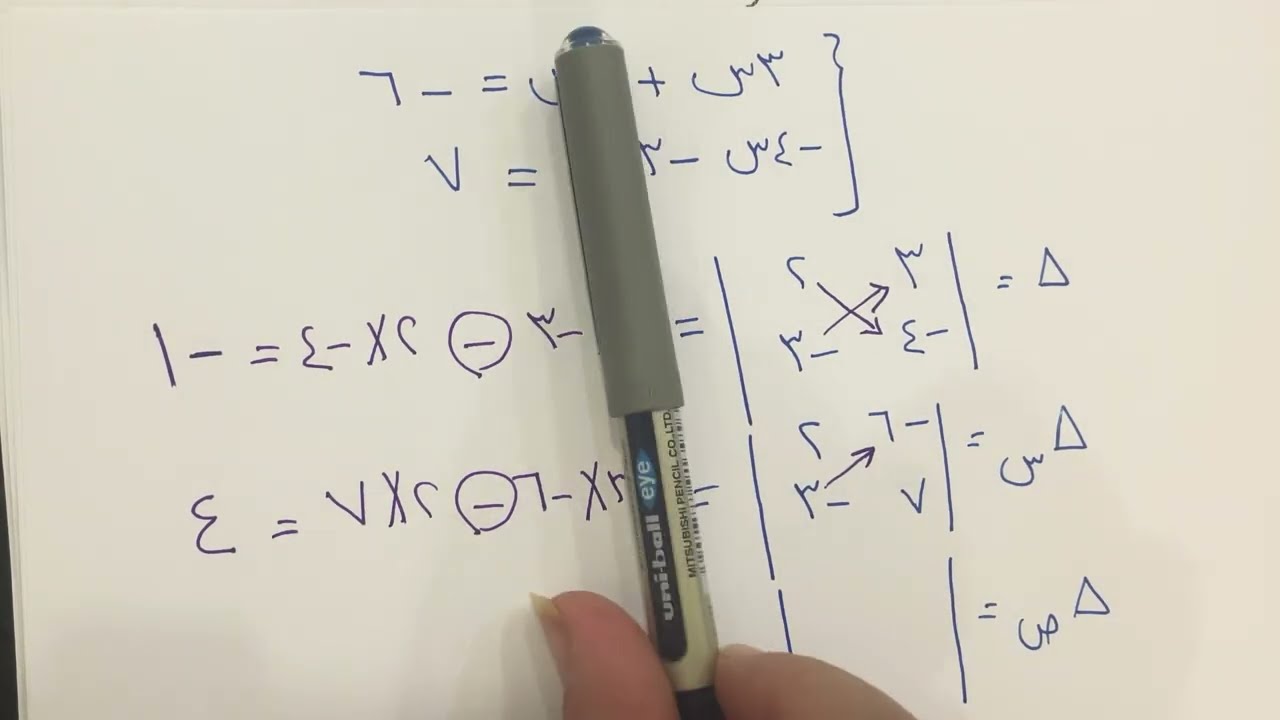 ٣س + = -٦
-٤س -٣ = ٧
Δ = | ٣ ٢ |
| -٤ -٣ | = -٣ - ٢×-٤ = -١
Δس = | -٦ ٢ |
| ٧ -٣ | = ×-٦ - ٢×٧ = ٤
Δص = |
uni-ball eye
MITSUBISHI PENCIL CO.,LTD.